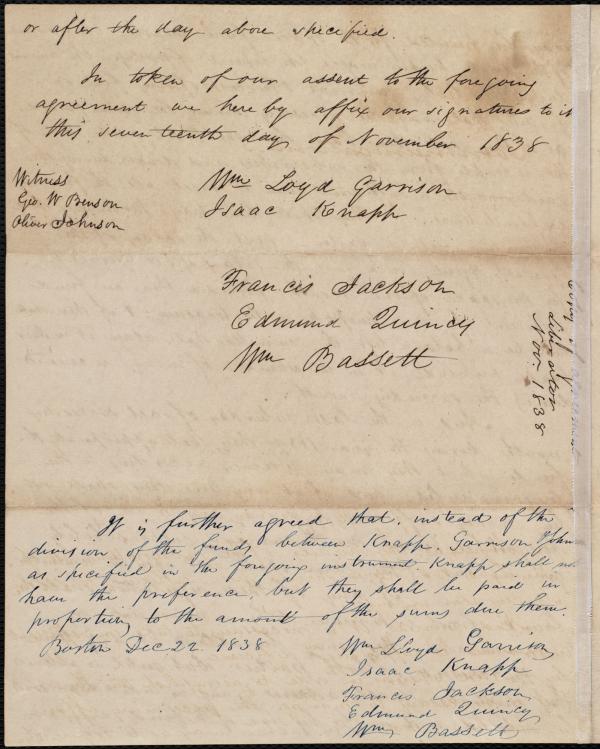 or after the day above specified.
In token of our assent to the foregoing
agreement we here by affix our signatures to it
this seventeenth day of November 1838
Witness
Geo. W Benson
Oliver Johnson
Wm Loyd Garrison
Isaac Knapp
Francis Jackson
Edmund Quincy
Wm Bassett
Copy of
Liberator
Nov. 1838
It is further agreed that, instead of the
division of the funds between Knapp, Garrison & Johns
as specified in the foregoing instrument Knapp shall no
have the preference, but they shall be paid in
proportion to the amount of the sums due them.
Boston Dec 22 1838
Wm Lloyd Garrison
Isaac Knapp
Francis Jackson
Edmund Quincy
Wm Bassett